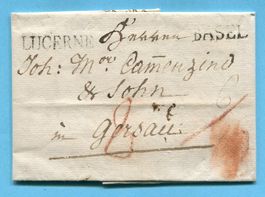 LUCERNE Herren BASEL
Joh: Mor Camenzind
& Sohn
in Gersau